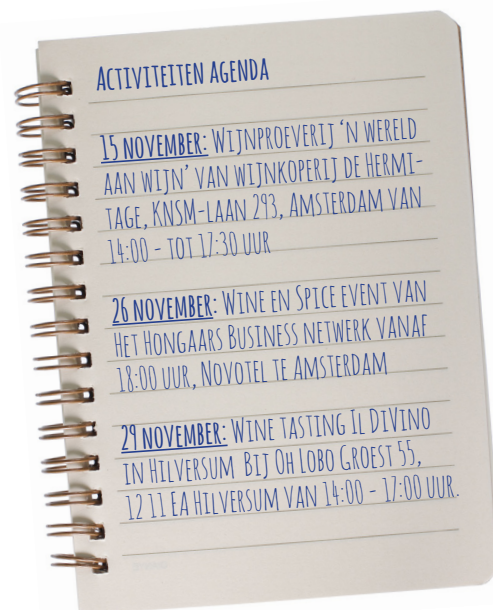 Activiteiten agenda
15 november: Wijnproeverij ‘n wereld
aan wijn’ van wijnkoperij de Hermi-
tage, KNSM-laan 293, Amsterdam van
14:00 - tot 17:30 uur
26 november: Wine en Spice event van
het Hongaars Business netwerk vanaf
18:00 uur, Novotel te Amsterdam
29 november: Wine tasting Il DiVino
in Hilversum Bij Oh Lobo Groest 55,
12 11 EA Hilversum van 14:00 - 17:00 uur.